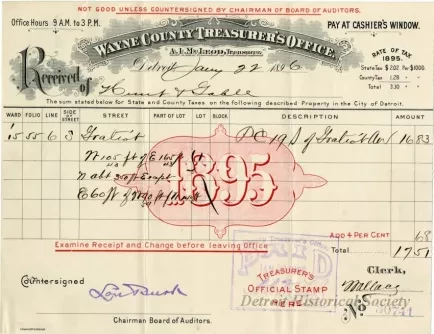 NOT GOOD UNLESS COUNTERSIGNED BY CHAIRMAN OF BOARD OF AUDITORS.
Office Hours 9 A.M. TO 3 P.M.
PAY AT CASHIER'S WINDOW.
WAYNE COUNTY TREASURER'S OFFICE,
A. I. McLEOD, TREASURER.
RATE OF TAX
1895.
State Tax $ 2.02 Per $1000
County Tax 1.28 "
Total 3.30 " "
Detroit Jany 22 1896
Received of Hunt &
The sum stated below for State and County Taxes on the following described Property in the City of Detroit.
WARD FOLIO LINE SIDE OF STREET STREET PART OF LOT LOT BLOCK DESCRIPTION AMOUNT
15 55 6 3 Gratiot PC 19 S of Gratiot Av 16.83
W 105 ft of E 165 ft
N abt 350 ft
E 60 ft of
1895
ADD 4 PER CENT 68
Examine Receipt and Change before leaving Office
Total 17 51
PAID
Clerk,
Wallace
Countersigned
TREASURER'S
OFFICIAL STAMP
HERE.
No
Detroit Historical Society
Chairman Board of Auditors.